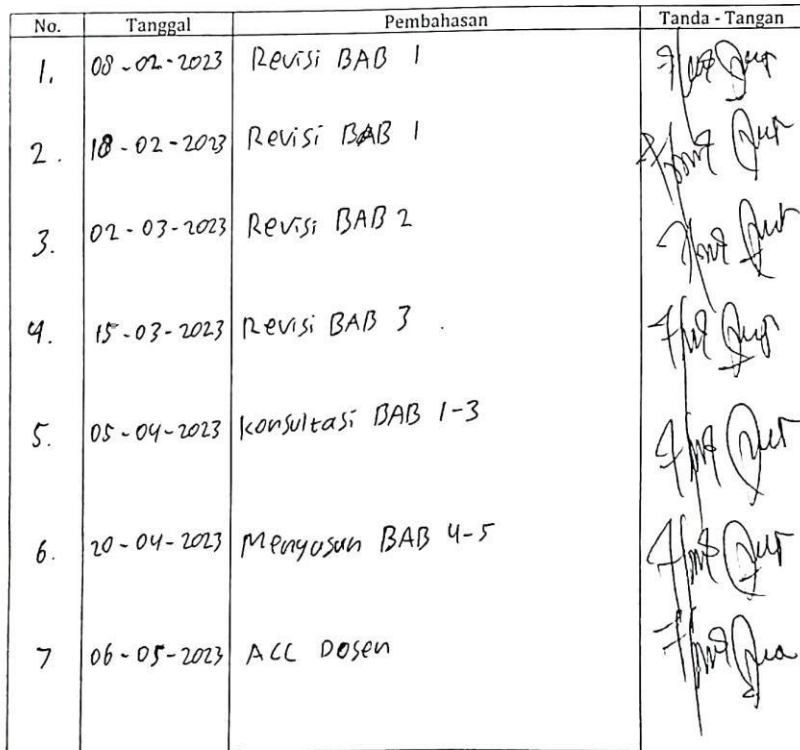 No. Tanggal Pembahasan Tanda - Tangan
1. 08-02-2023 Revisi BAB 1
2. 18-02-2023 Revisi BAB 1
3. 02-03-2023 Revisi BAB 2
4. 15-03-2023 Revisi BAB 3
5. 05-04-2023 Konsultasi BAB 1-3
6. 20-04-2023 Menyusun BAB 4-5
7 06-05-2023 ACC Dosen